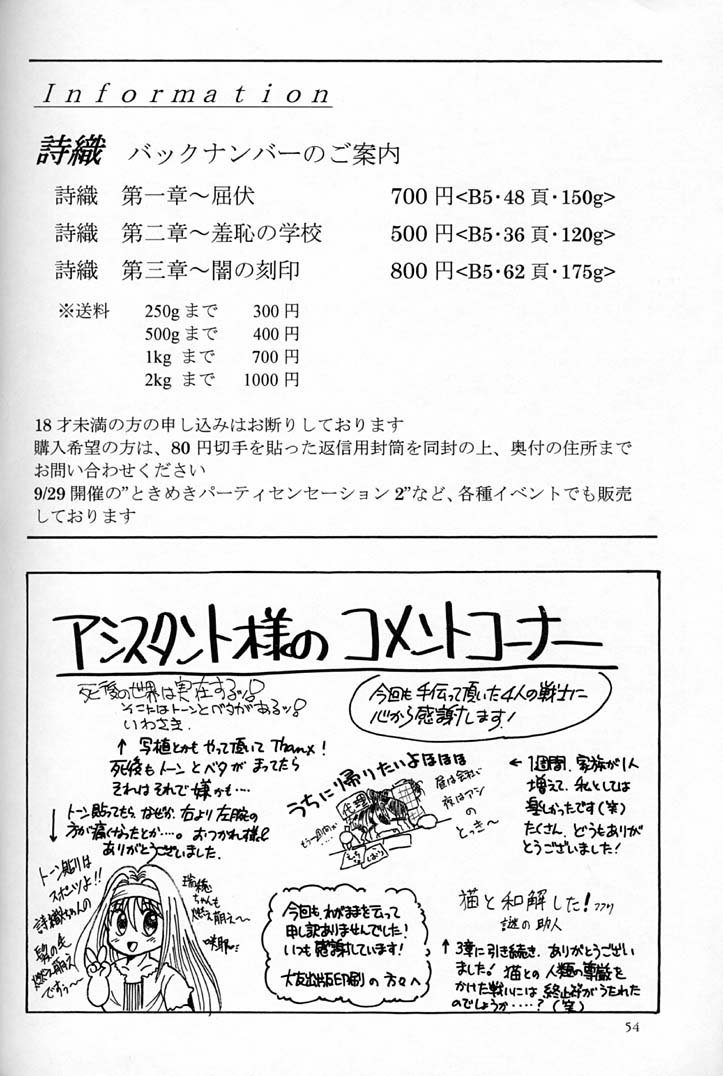 Information
詩織 バックナンバーのご案内
詩織 第一章～屈伏 700円<B5・48頁・150g>
詩織 第二章～羞恥の学校 500円<B5・36頁・120g>
詩織 第三章～闇の刻印 800円<B5・62頁・175g>
※送料 250gまで 300円
500gまで 400円
1kg まで 700円
2kg まで 1000円
18才未満の方の申し込みはお断りしております
購入希望の方は、80円切手を貼った返信用封筒を同封の上、奥付の住所まで
お問い合わせください
9/29開催の”ときめきパーティセンセーション2”など、各種イベントでも販売
しております
アシスタント様の コメントコーナー
死後の世界は実在するッ!
そこにはトーンとベタがあるッ!
いわさき
今回も手伝って頂いた4人の戦士に
心から感謝します!
↑ 写植とかもやって頂いて Thanx!
死後もトーンとベタがまってたら
それはそれで嫌かも…
うちに帰りたいよほほほ
昼は会社で
夜はアシ
の
とっき～
代理
← 1週間、家族が1人
増えて、私としては
楽しかったです(笑)
たくさん、どうもありが
とうございました!
↓ トーン貼ってもら、なぜか、右より左腕の
方が痛くなったとか…。おつかれ様&
ありがとうございました。
トーン貼りは
スポーツよ!!
詩織ちゃんの
髪の毛
燃え萌え
ですぅ～
瑞穂
ちゃんも
燃え萌え～
咲耶
今回も、わがままを云って
申し訳ありませんでした!
いつも感謝しています!
大友出版印刷の方々へ
猫と和解した! フフリ
謎の助人
↑ 3章に引き続き、ありがとうござい
ました! 猫との人類の尊厳を
かけた戦いには 終止符がうたれた
のでしょうか……? (笑)
54